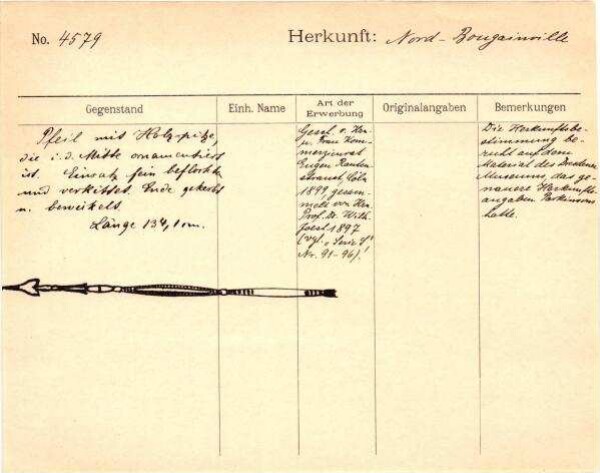 No. 4579
Herkunft: Nord-Bougainville
Gegenstand
Einh. Name
Art der
Erwerbung
Originalangaben
Bemerkungen
Pfeil mit Holzspitze,
die i. d. Mitte ornamentiert
ist. Einsatz fein beflochten
und verkittet. Ende gekerbt
u. bewickelt.
Länge 134,1 cm.
Gesch. v. Herrn
u. Frau Kom-
merzienrat
Eugen Rauten-
strauch, Cöln
1899 gesam-
melt von Herrn
Prof. Dr. Wilh.
Joest 1897
(vgl. "Serie I"
Nr. 91-96)!
Die Herkunftsbe-
stimmung be-
ruht auf dem
Material des Dresdener
Museums, das ge-
nauere Herkunfts-
angaben Parkinsons
hatte.